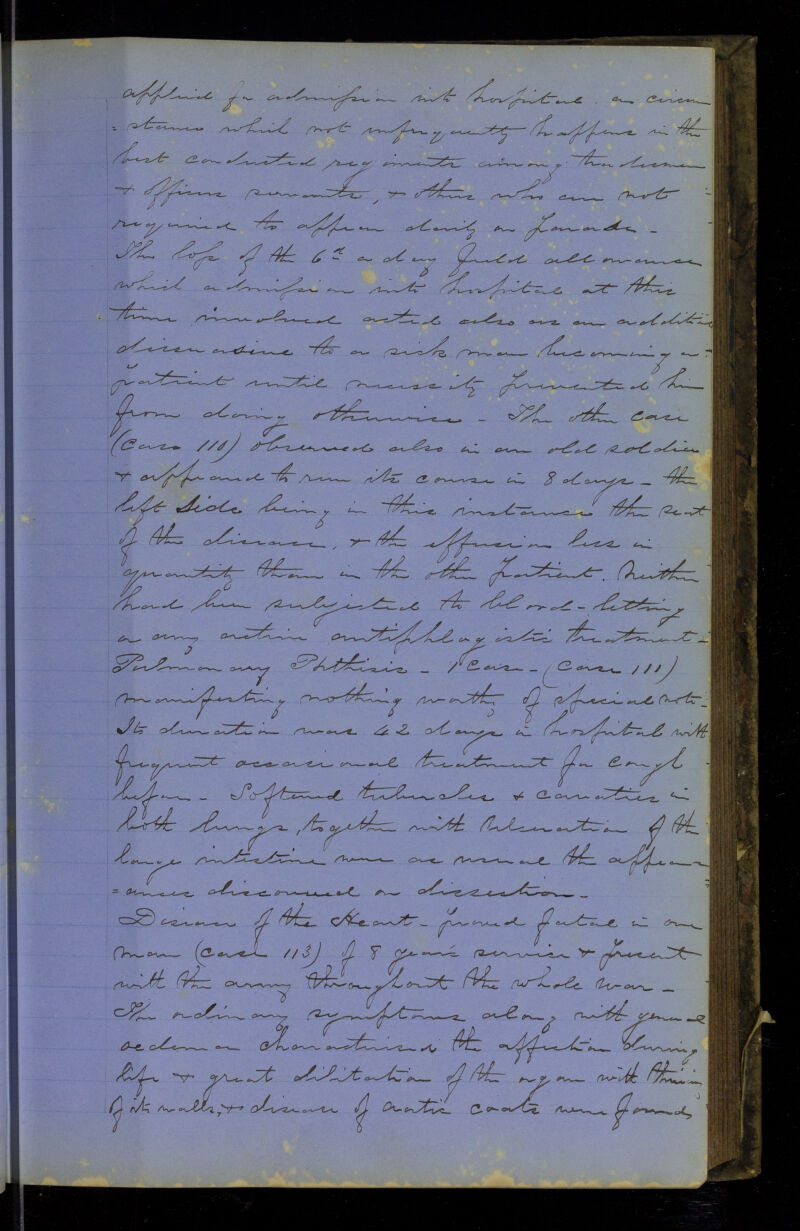 applied for admission into hospital. a circum
=stance which not unfrequently happens in the
best conducted regiments among tradesmen
& officers servants, & others who are not
required to appear daily on parade -
The loss of the 6d a day field allowance
which admission into hospital at this
time involved acted also as an addition
dissuasive to a sick man becoming a
patient until necessity prevented him
from doing otherwise - The other case
(case 110) observed also in an old soldier
& appeared to run its course in 8 days - the
left side being in this instance the seat
of the disease, & the effusion less in
quantity than in the other patient. Neither
had been subjected to blood-letting
or any active antiphlogistic treatment -
Pulmonary Phthisis - 1 case - (case 111)
manifesting nothing worthy of special note -
Its duration was 42 days in hospital with
frequent occasional treatment for cough
before - Softened tubercles & cavities in
both lungs, together with ulceration of the
large intestine were as usual the appear
=ances discovered on dissection -
Disease of the Heart - proved fatal in one
man (case 113) of 8 years service & present
with the army throughout the whole war -
The ordinary symptoms along with general
oedema characterised the affection during
life & great dilitation of the organ with thining
of its walls, & disease of aortic coats were found